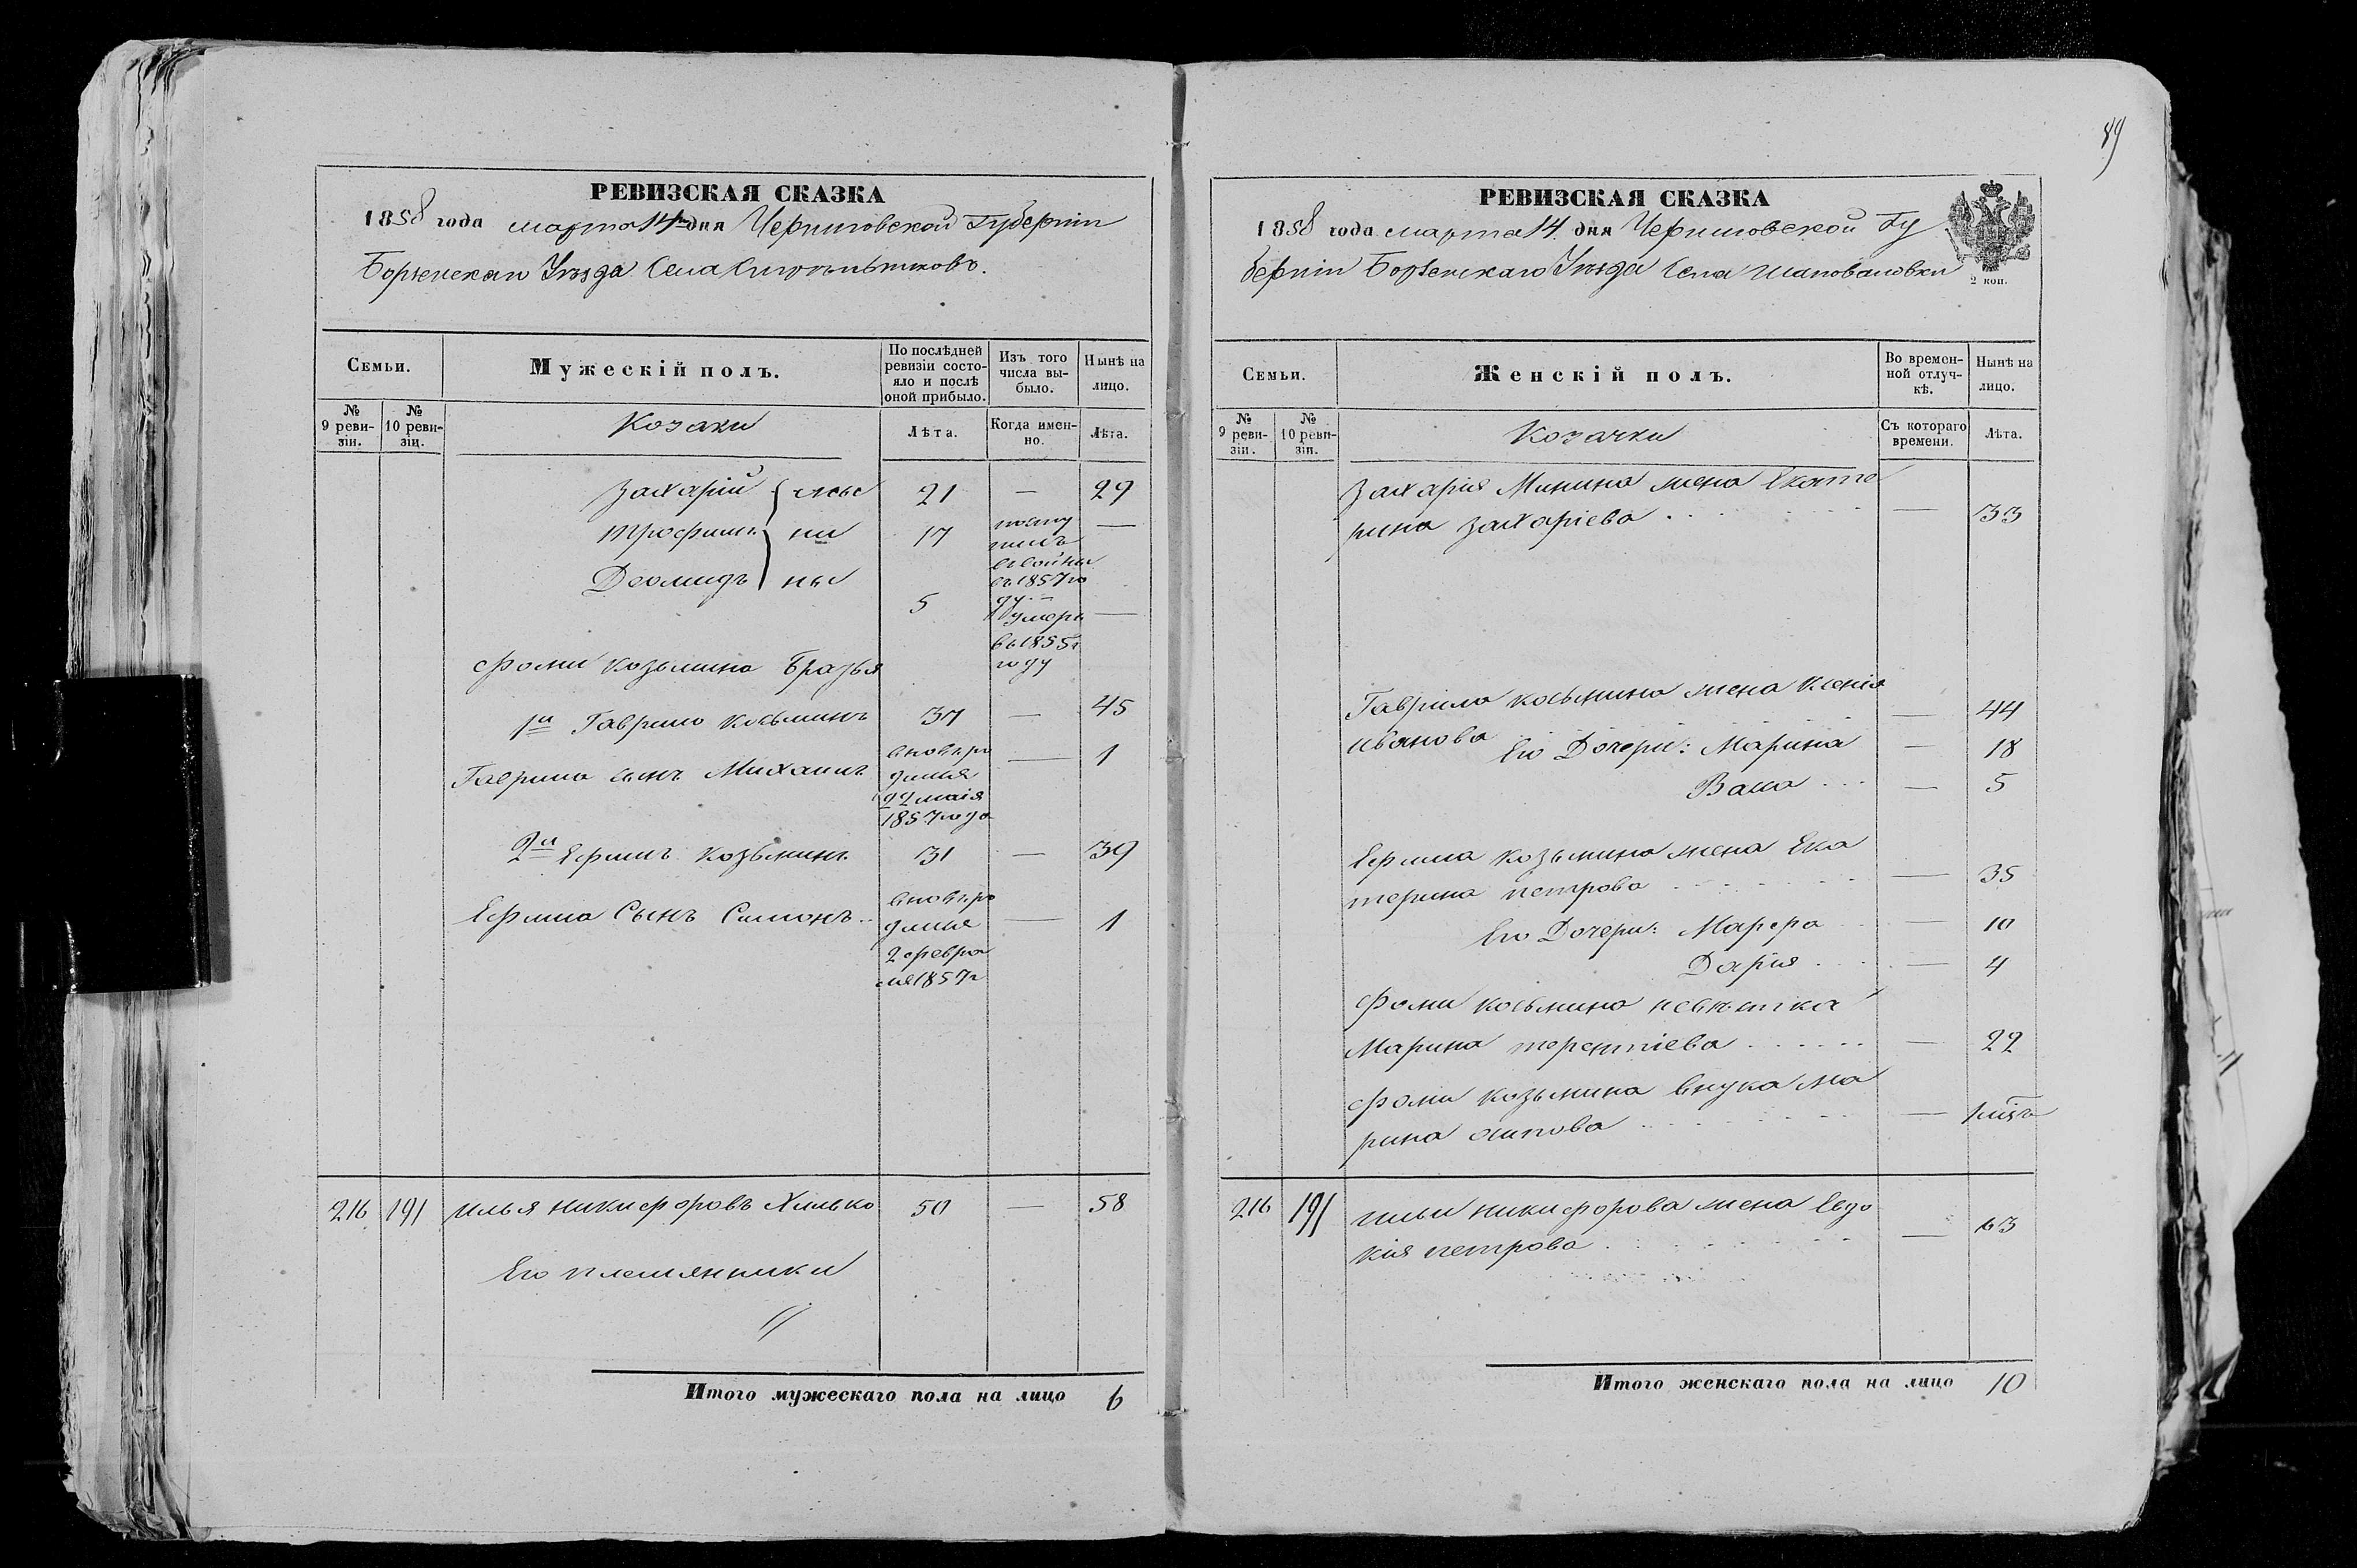 89
РЕВИЗСКАЯ СКАЗКА
1858 года марта 14 дня Черниговской Губерніи
Борзенскаго Уѣзда Села
Семьи.
Мужескій полъ.
По послѣдней ревизіи состояло и послѣ оной прибыло.
Изъ того числа выбыло.
Нынѣ на лицо.
№ 9 ревизіи.
№ 10 ревизіи.
Козаки
Лѣта.
Когда именно.
Лѣта.
Захарій 21 — 29
Трофимъ 17 —
въ 1857 го
ду
Деомидъ 5 умеръ —
въ 1855
году
Фоми Козьмина Братья
1й Гаврило Козьминъ 37 — 45
Гаврила сынъ Михаилъ вновь ро — 1
дился
22 маія
1857 года
2й Ефимъ Козьминъ 31 — 39
Ефима Сынъ Симонъ вновь ро — 1
дился
2 февра
ля 1857 г
216 191 Илья Никифоровъ Хилько 50 — 58
Его племянники
Итого мужескаго пола на лицо 6
РЕВИЗСКАЯ СКАЗКА
1858 года марта 14 дня Черниговской Гу
берніи Борзенскаго Уѣзда Села Шаповаловки
2 коп.
Семьи.
Женскій полъ.
Во временной отлучкѣ.
Нынѣ на лицо.
№ 9 ревизіи.
№ 10 ревизіи.
Козачки
Съ котораго времени.
Лѣта.
Захарія Минина жена Екате
рина Захаріева — 33
Гаврила Козьмина жена Ксенія
Иванова — 44
Его Дочери: Марина — 18
Васа — 5
Ефима Козьмина жена Ека
терина Петрова — 35
Его Дочери: Марфа — 10
Дарія — 4
Фоми Козьмина невѣстка
Марина Терентіева — 22
Фоми Козьмина внука Ма
рина Осипова — 1
216 191 Ильи Никифорова жена Евдо
кія Петрова — 63
Итого женскаго пола на лицо 10